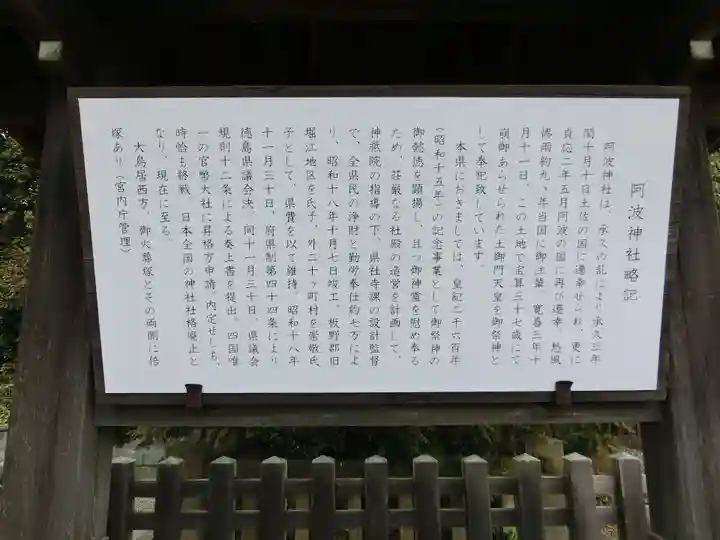 阿波神社略記
阿波神社は、承久の乱により承久三年
閏十月十日土佐の国に遷幸せられ、更に
貞応二年五月阿波の国に再び遷幸、愁風
惨雨約九ヶ年当国に御主輦、寛喜三年十
月十一日、この土地で宝算三十七歳にて
崩御あらせられた土御門天皇を御祭神と
して奉祀致しています。
本県におきましては、皇紀二千六百年
(昭和十五年)の記念事業として御祭神の
御懿徳を顕揚し、且つ御神霊を慰め奉る
ため、荘厳なる社殿の造営を計画して、
神祇院の指導の下、県社寺課の設計監督
で、全県民の浄財と勤労奉仕約七万によ
り、昭和十八年十月七日竣工。板野郡旧
堀江地区を氏子、外二十ヶ町村を崇敬氏
子として、県費を以て維持。昭和十八年
十一月三十日、府県制第四十四条により
徳島県議会決、同十一月三十日、県議会
規則十二条による奏上書を提出。四国唯
一の官幣大社に昇格方申請。内定せしも、
時恰も終戦、日本全国の神社社格廃止と
なり、現在に至る。
大鳥居西方、御火葬塚とその両側に倍
塚あり(宮内庁管理)